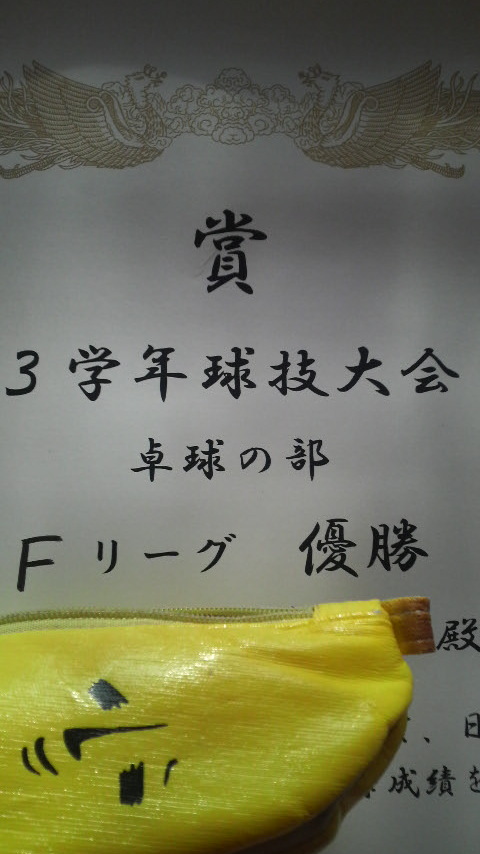 賞
3学年球技大会
卓球の部
Fリーグ 優勝
殿
、日
成績を